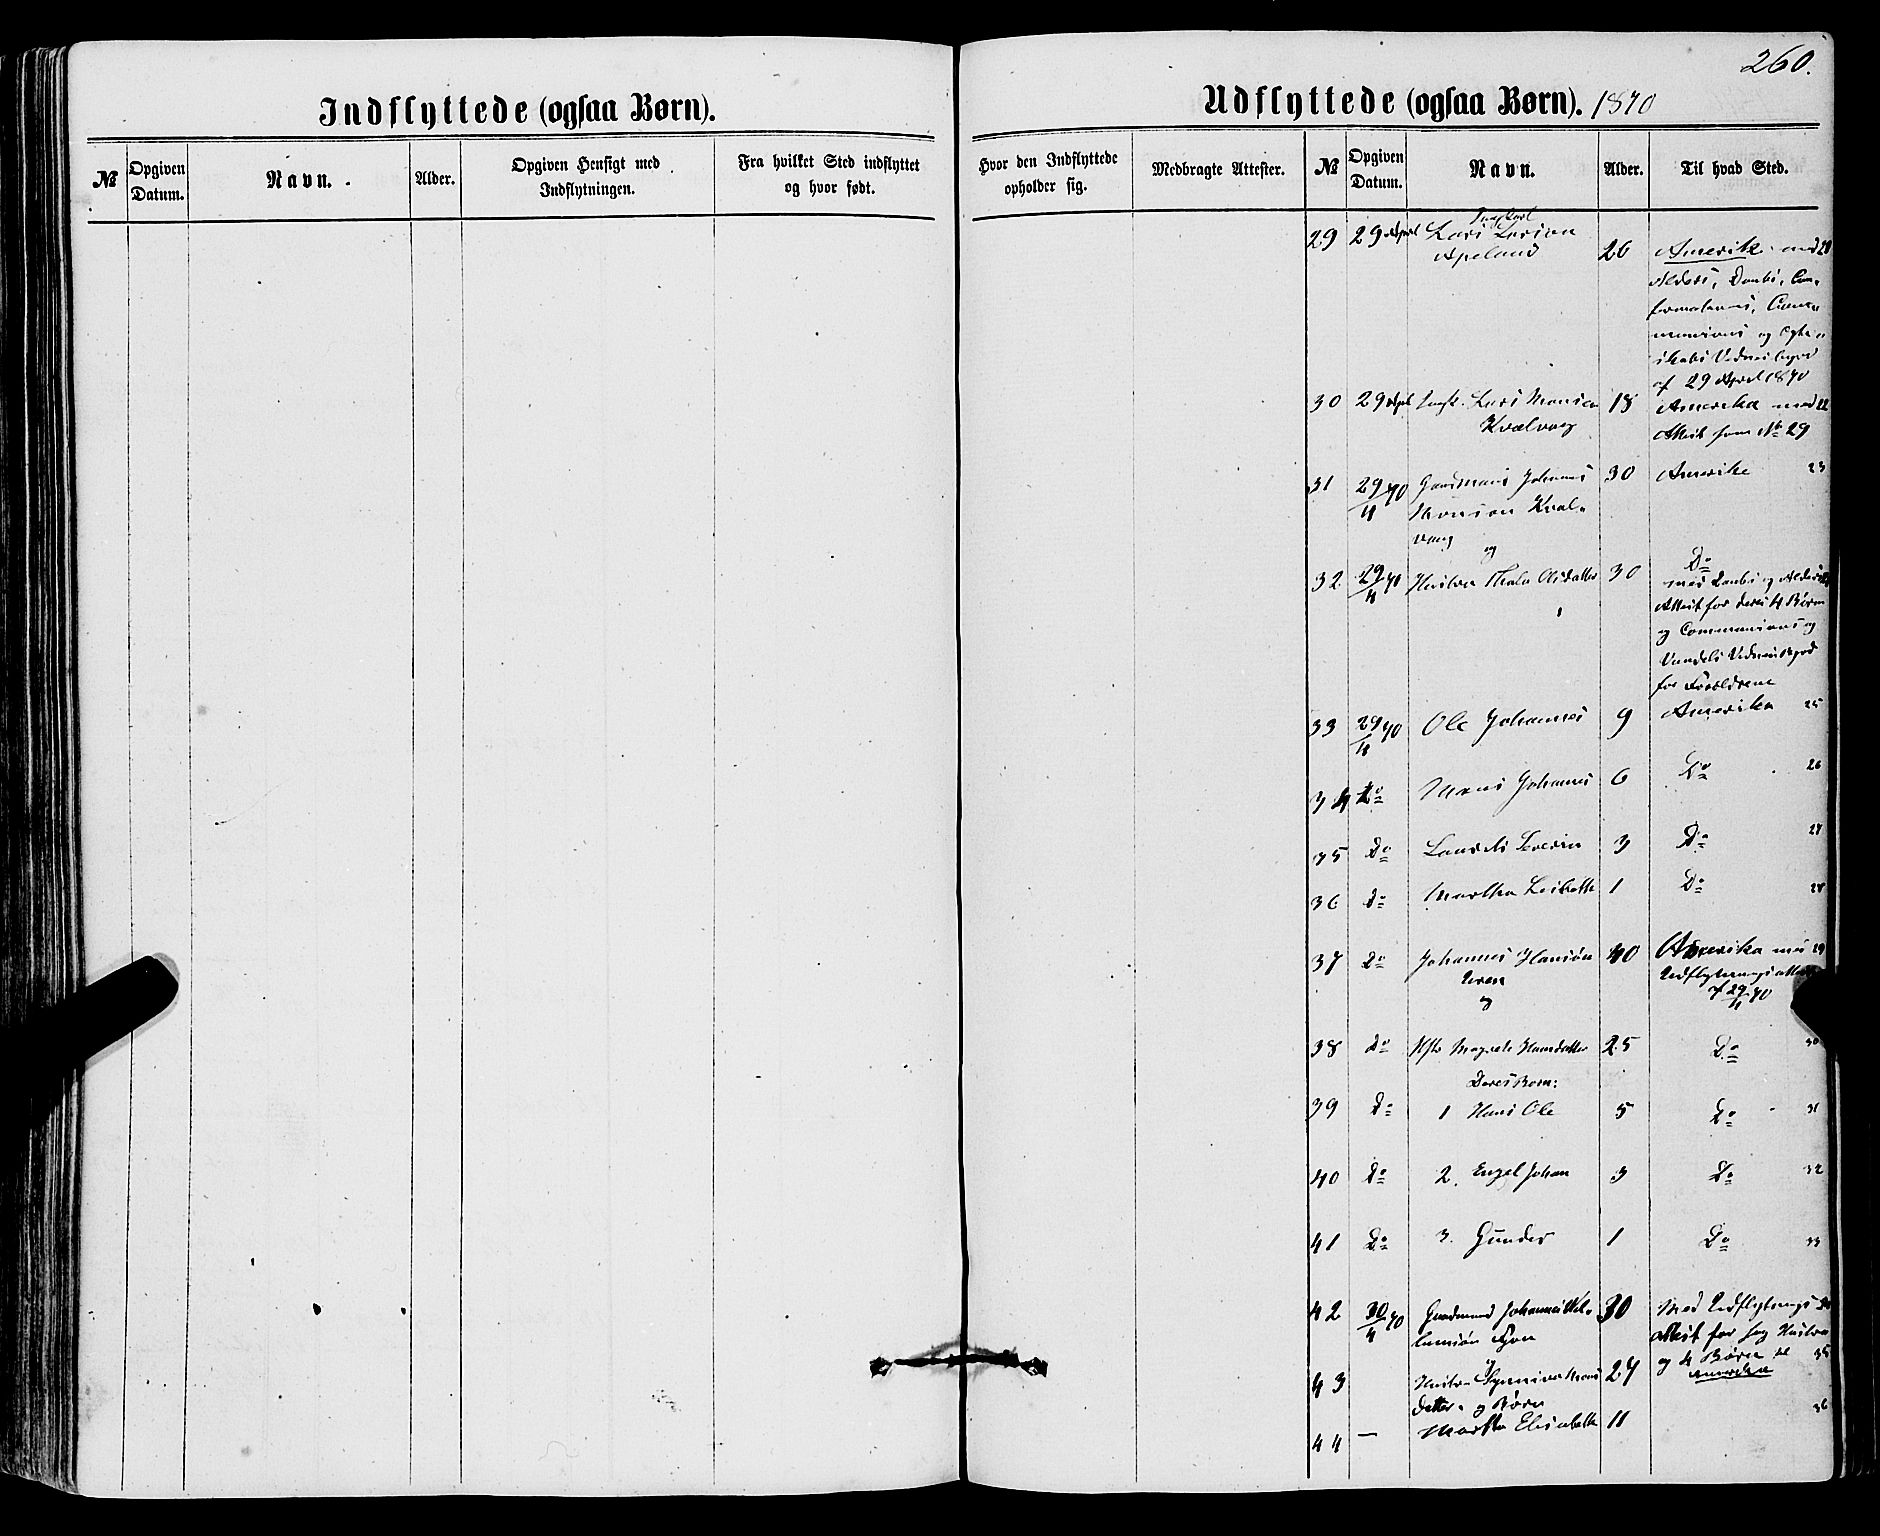 260.
Indflyttede (ogsaa Børn).
№
Opgiven Datum.
Navn.
Alder.
Opgiven Hensigt med Indflytningen.
Fra hvilket Sted indflyttet og hvor født.
Udflyttede (ogsaa Børn). 1870
Hvor den Indflyttede opholder sig.
Medbragte Attester.
№
Opgiven Datum.
Navn.
Alder.
Til hvad Sted.
Ungkarl
29 29 April Lars Larsen
Apeland 26 Amerika med 21
Alders, Daabs, Con-
firmations, Com-
munions og
Vidnesbyrd
af 29 April 1870
30 29 April Ungk. Lars Monsen 18 Amerika med 22
Kvalvaag Attest som № 29
31 29/4 70 Gaardmand Johannes 30 Amerika 23
Monsen Kval-
vaag
og
32. 29/4 70 Hustru Olsdatter 30 Do
med Daabs og Alders
Attest for deres 4 Børn
og Communions og
Vandels Vidnesbyrd
for Forældrene
33 29/4 70 Ole Johannes 9 Amerika 25
34 Do Mons Johannes 6 Do 26
35 Do Laurits Severin 3 Do 27
36 Do Martha Lisbeth 1 Do 28
37 Do Johannes Hansøn 40 Amerika med 29
og Udflytningsattest
af 29/4 70
38 Do Hustr Magrete Hansdatter 25 Do 30
Deres Børn:
39 Do 1 Hans Ole 5 Do 31
40 Do 2. Engel Johan 3 Do 32
41 Do 3. Gunder 1 Do 33
42 30/4 70 Gaardmand Johannes Wil- 30 Med Udflytnings 34
lumsøn attest for sig Hustru
og og 4 Børn til 35
43 Hustru Synniva Mons 27 Amerika
datter og Børn
44 — Martha Elisabeth 11 36